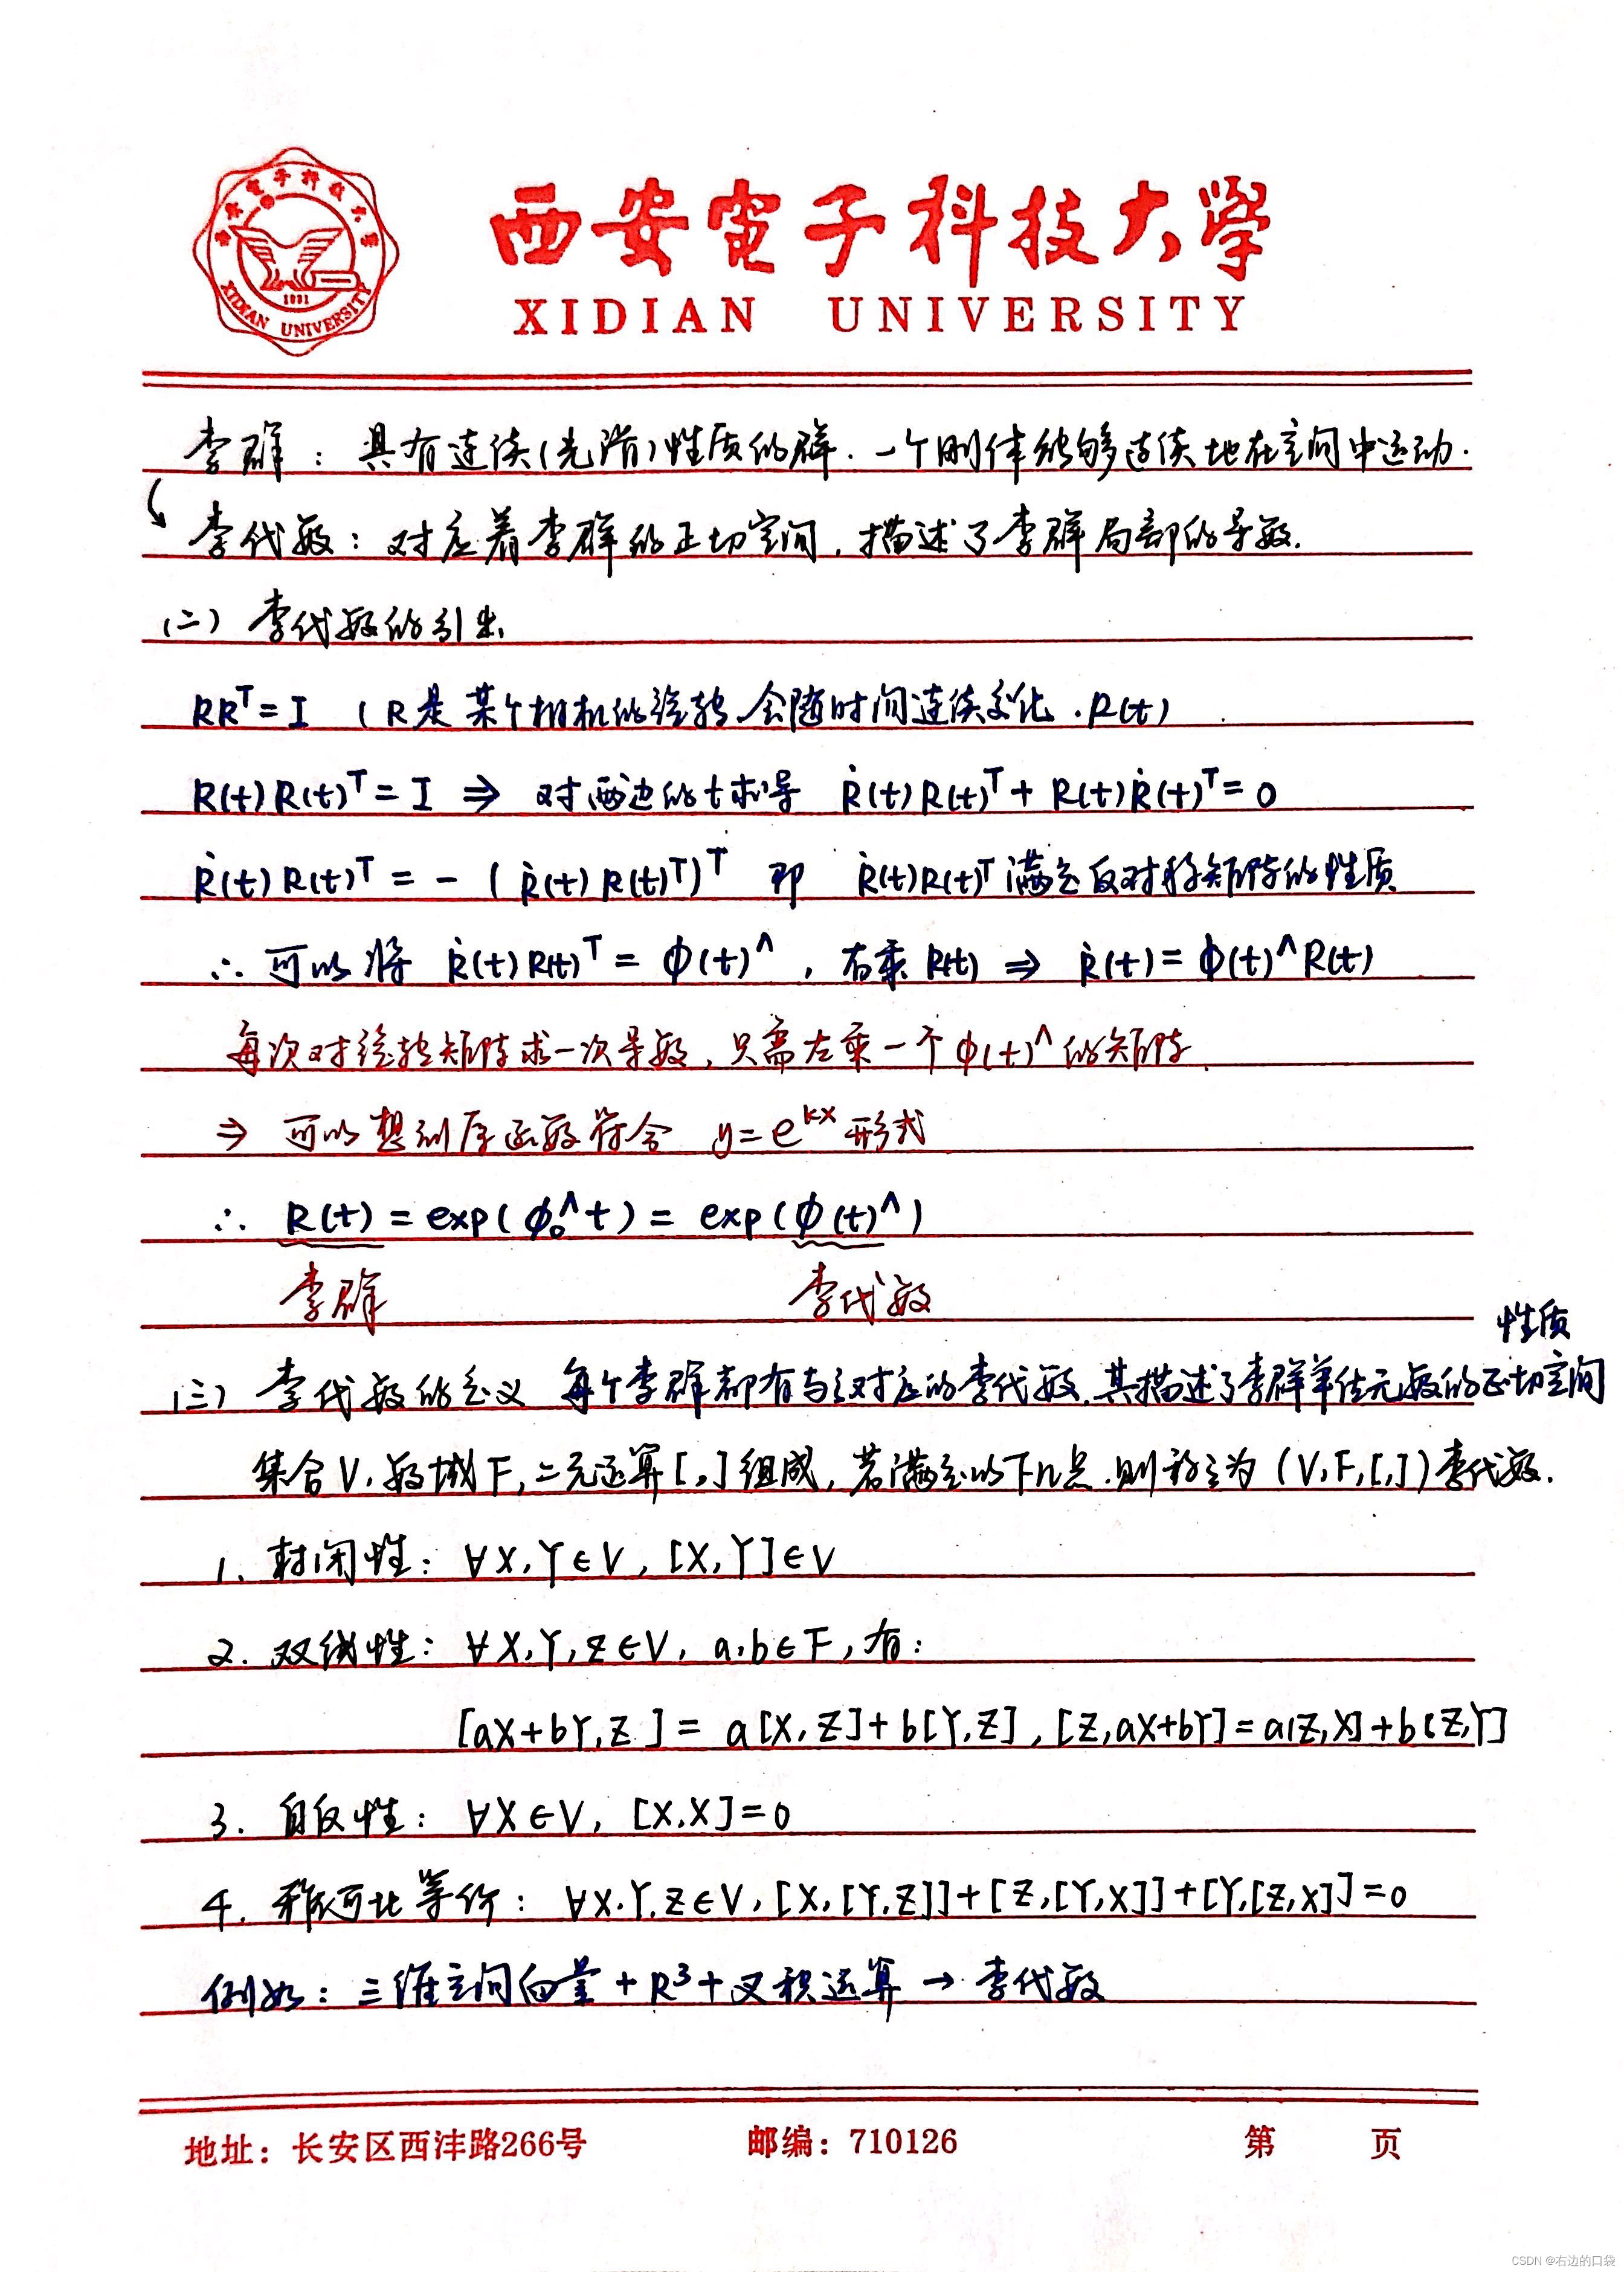 西安電子科技大學
XIDIAN UNIVERSITY
西安电子科技大学
1931
XIDIAN UNIVERSITY
李群：具有连续(光滑)性质的群.一个刚体能够连续地在空间中运动.
李代数：对应着李群的正切空间,描述了李群局部的导数.
(二) 李代数的引出
RRᵀ=I (R是某个相机的旋转,会随时间连续变化.R(t)
R(t)R(t)ᵀ=I ⇒ 对两边的t求导 Ṙ(t)R(t)ᵀ+R(t)Ṙ(t)ᵀ=0
Ṙ(t)R(t)ᵀ=-(Ṙ(t)R(t)ᵀ)ᵀ 即 Ṙ(t)R(t)ᵀ满足反对称矩阵的性质
∴可以将 Ṙ(t)R(t)ᵀ=ϕ(t)^,右乘R(t) ⇒ Ṙ(t)=ϕ(t)^R(t)
每次对旋转矩阵求一次导数,只需左乘一个ϕ(t)^的矩阵.
⇒ 可以想到原函数符合 y=eᵏˣ形式
∴ R(t)=exp(ϕ₀^t)=exp(ϕ(t)^)
李群 李代数
性质
(三) 李代数的定义 每个李群都有与之对应的李代数.其描述了李群单位元数的正切空间
集合V,数域F,二元运算[,]组成,若满足以下几点.则称之为(V,F,[,])李代数.
1. 封闭性：∀X,Y∈V,[X,Y]∈V
2. 双线性：∀X,Y,Z∈V,a,b∈F,有：
[aX+bY,Z]=a[X,Z]+b[Y,Z],[Z,aX+bY]=a[Z,X]+b[Z,Y]
3. 自反性：∀X∈V,[X,X]=0
4. 雅可比等价：∀X,Y,Z∈V,[X,[Y,Z]]+[Z,[Y,X]]+[Y,[Z,X]]=0
例如：三维空间向量+R³+叉积运算→李代数
地址：长安区西沣路266号 邮编：710126 第 页
CSDN @右边的口袋